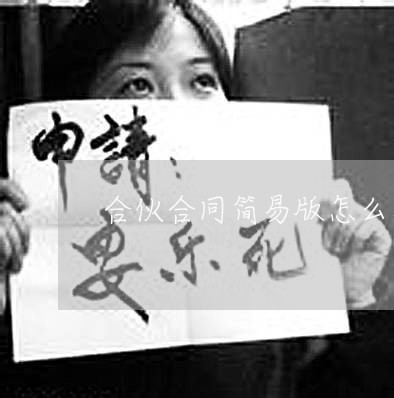 申請：
合伙合同简易版怎么
安乐死